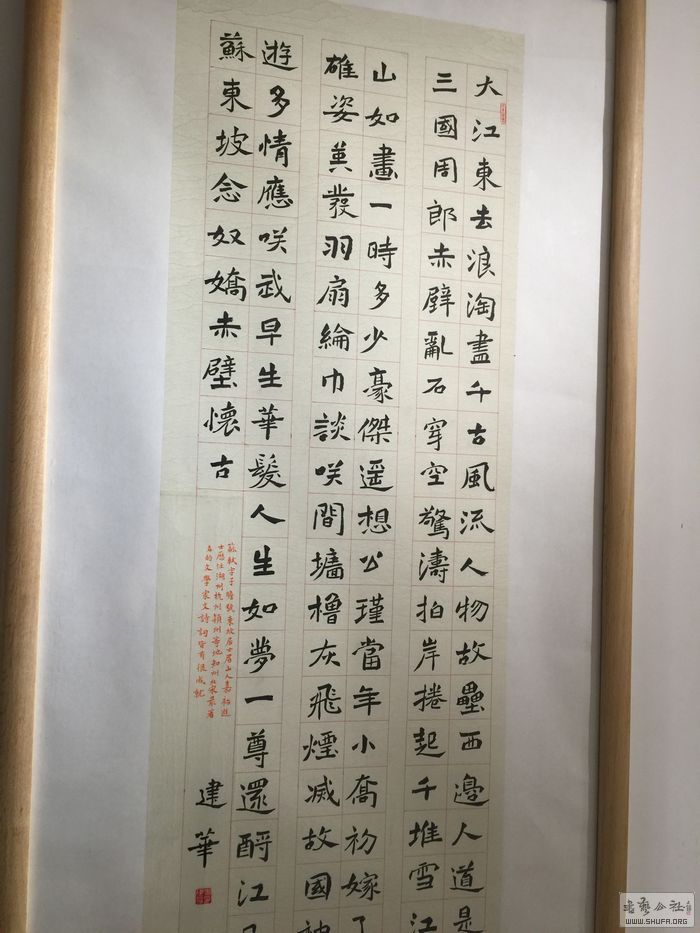 大江東去浪淘盡千古風流人物故壘西邊人道是
三國周郎赤壁亂石穿空驚濤拍岸捲起千堆雪江
山如畫一時多少豪傑遥想公瑾當年小喬初嫁了
雄姿英發羽扇綸巾談咲間墻櫓灰飛煙滅故國神
遊多情應咲我早生華髮人生如夢一尊還酹江月
蘇東坡念奴嬌赤壁懷古
蘇軾字子瞻號東坡居士眉山人嘉祐進
士歷任湖州杭州潁州等地知州北宋最著
名的文學家文詩詞皆有很成就
建華
書藝公社
WWW.SHUFA.ORG